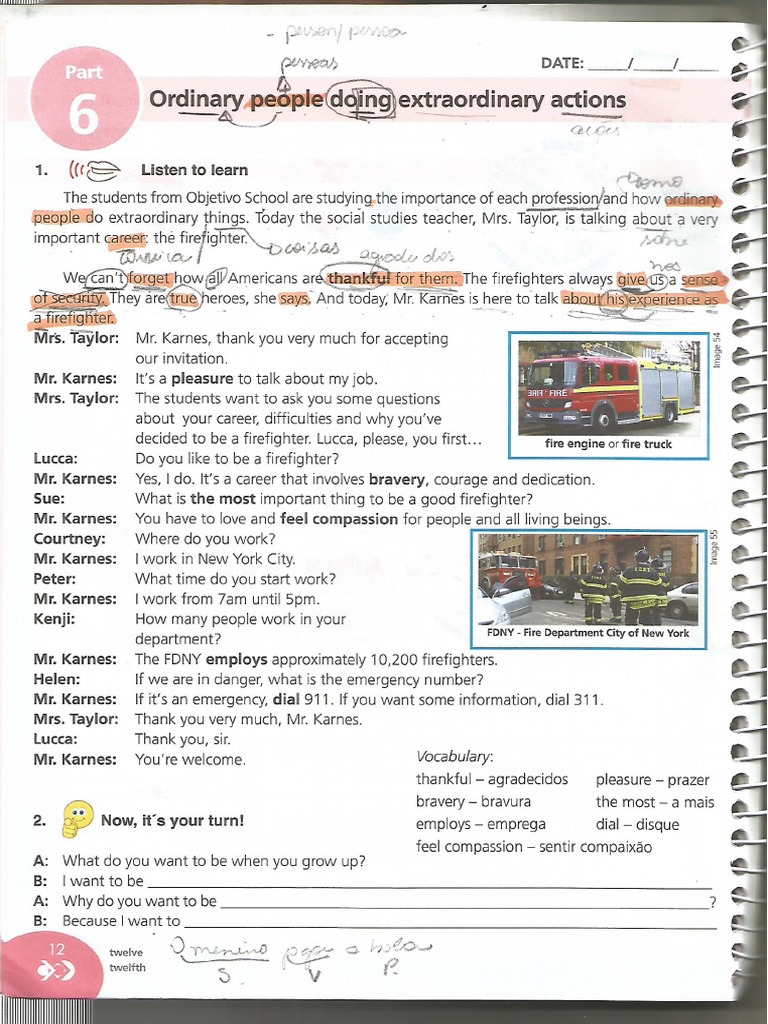 - person/pessoa
pessoas
DATE: ____/____/____
Part
6
Ordinary people doing extraordinary actions
ações
1. Listen to learn
The students from Objetivo School are studying the importance of each profession/and how ordinary
people do extraordinary things. Today the social studies teacher, Mrs. Taylor, is talking about a very
important career: the firefighter.
coisas agradecidos sobre
nos
We can't forget how all Americans are thankful for them. The firefighters always give us a sense
of security. They are true heroes, she says. And today, Mr. Karnes is here to talk about his experience as
a firefighter.
Mrs. Taylor: Mr. Karnes, thank you very much for accepting
our invitation.
Mr. Karnes: It's a pleasure to talk about my job.
Mrs. Taylor: The students want to ask you some questions
about your career, difficulties and why you've
decided to be a firefighter. Lucca, please, you first...
Lucca: Do you like to be a firefighter?
Mr. Karnes: Yes, I do. It's a career that involves bravery, courage and dedication.
Sue: What is the most important thing to be a good firefighter?
Mr. Karnes: You have to love and feel compassion for people and all living beings.
Courtney: Where do you work?
Mr. Karnes: I work in New York City.
Peter: What time do you start work?
Mr. Karnes: I work from 7am until 5pm.
Kenji: How many people work in your
department?
Mr. Karnes: The FDNY employs approximately 10,200 firefighters.
Helen: If we are in danger, what is the emergency number?
Mr. Karnes: If it's an emergency, dial 911. If you want some information, dial 311.
Mrs. Taylor: Thank you very much, Mr. Karnes.
Lucca: Thank you, sir.
Mr. Karnes: You're welcome.
Image 54
FIRE
fire engine or fire truck
Image 55
FDNY - Fire Department City of New York
Vocabulary:
thankful – agradecidos pleasure – prazer
bravery – bravura the most – a mais
employs – emprega dial – disque
feel compassion – sentir compaixão
2. Now, it´s your turn!
A: What do you want to be when you grow up?
B: I want to be ____
A: Why do you want to be ____?
B: Because I want to ____
12
twelve
twelfth
O menino a bola
S. V P.